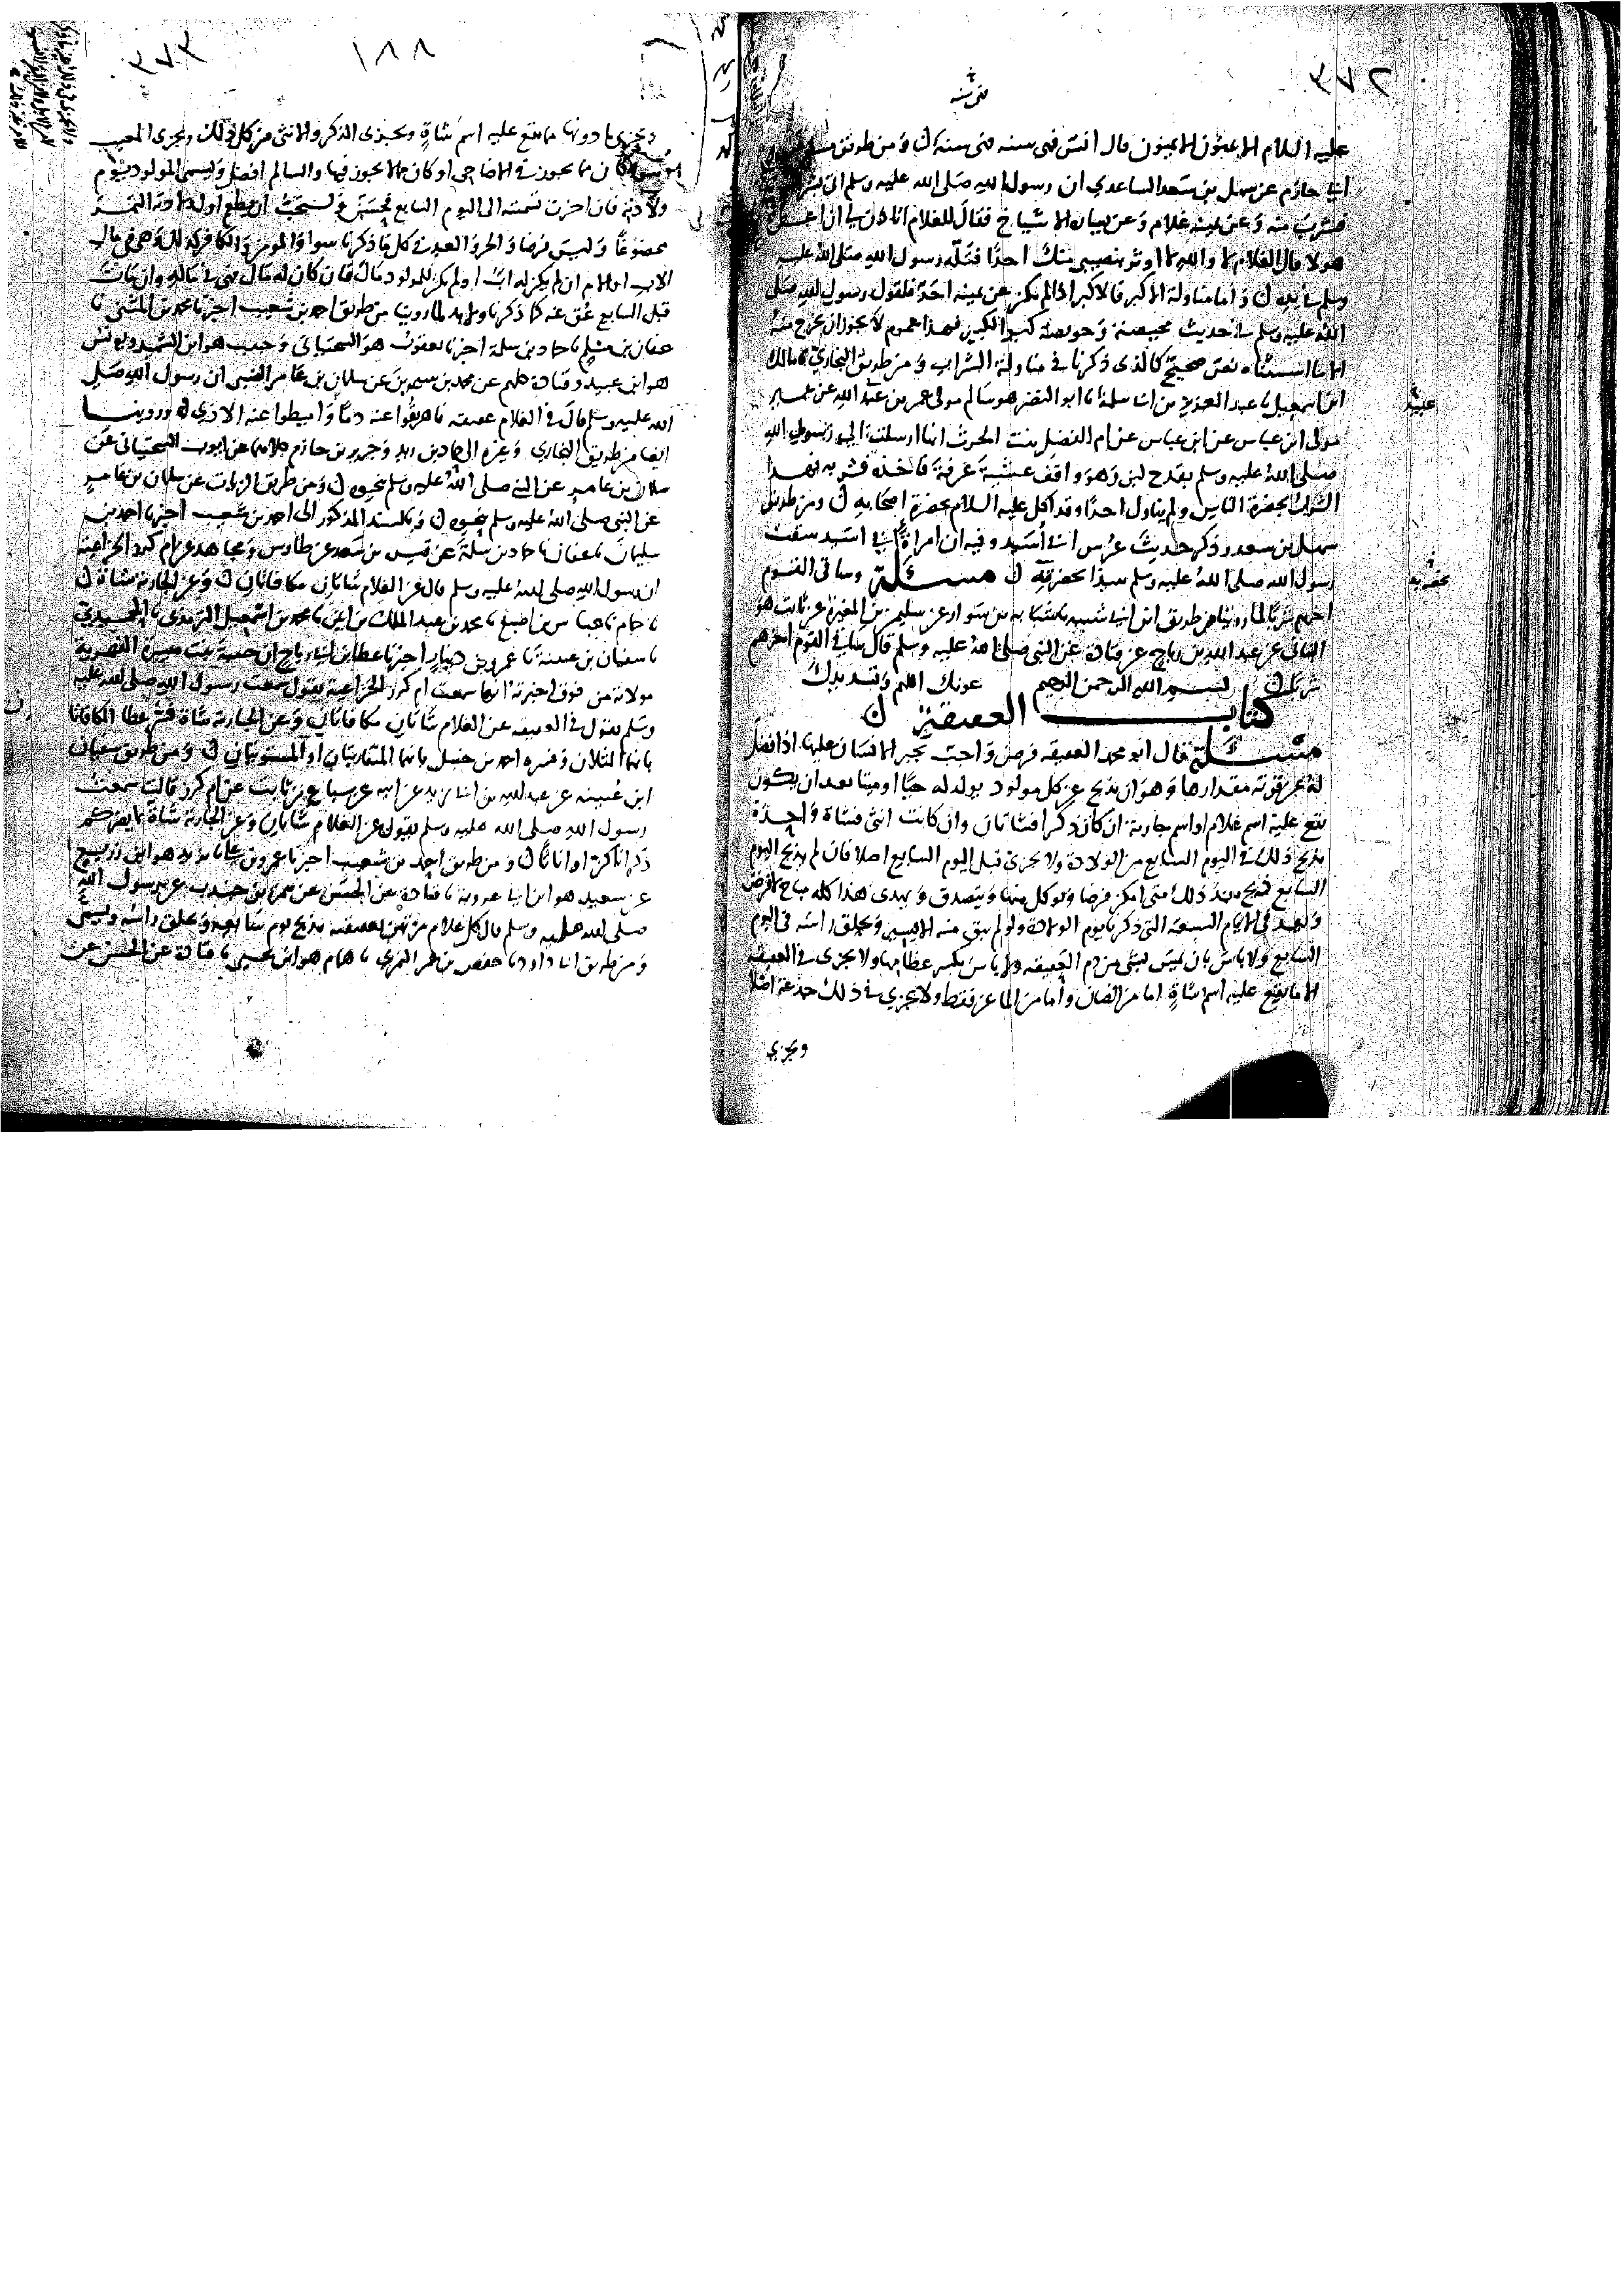 ٣٧٢
فهى سنه
عليه السلام الايمنون الايمنون قال انس فهى سنه فهى سنه ن ومن طريق
ابي حازم عن سهل بن سعد الساعدي ان رسول الله صلى الله عليه وسلم اتى بشراب
فشرب منه وعن يمينه غلام وعن يساره الاشياخ فقال للغلام اتاذن لي ان اعطى
هولا فقال الغلام لا والله لا اوثر بنصيبى منك احدا فتله رسول الله صلى الله عليه
وسلم في يده ن واما مناولة الاكبر فالاكبر اذا لم يكن عن يمينه احد فلقول رسول الله صلى
الله عليه وسلم في حديث محيصة وحويصة كبر الكبر فهذا عموم لا يجوز ان يخرج منه
الا ما استثناه نص صحيح كالذى ذكرنا في مناولة الشراب ومن طريق البخاري نا مالك
ابن اسمعيل نا عبد العزيز بن ابي سلمة نا ابو النضر هو سالم مولى عمر بن عبد الله عن عمير
عبيد
مولى ابن عباس عن ابن عباس عن ام الفضل بنت الحرث انها ارسلت الى رسول الله
صلى الله عليه وسلم بقدح لبن وهو واقف عشية عرفة فاخذه فشربه فهذا
الشراب بحضرة الناس ولم يناول احدا وقد اكل عليه السلام بحضرة اصحابه ن ومن طريق
سهل بن سعد وذكر حديث عرس ابي أسيد وفيه ان امراة ابي اسيد سقت
رسول الله صلى الله عليه وسلم نبيذا بحضرته ن مسئلة وساقى القوم
بحضرته
اخرهم شربا لما روينا من طريق ابن ابي شيبه نا شبابه بن سوار عن سليمن بن المغيرة عن ثابت هو
البناني عن عبد الله بن رباح عن قتادة عن النبى صلى الله عليه وسلم قال ساقي القوم اخرهم
شربا ن بسم الله الرحمن الرحيم عونك اللهم وتسديدك
كتاب العقيقة ن
مسئلة قال ابو محمد العقيقه فرض واجب يجبر الانسان عليها اذا فضل
له عن قوته مقدارها وهو ان يذبح عن كل مولود يولد له حيا او ميتا بعد ان يكون
يقع عليه اسم غلام او اسم جارية ان كان ذكرا فشاتان وان كانت انثى فشاة واحدة
يذبح ذلك في اليوم السابع من الولادة ولا يجزى قبل اليوم السابع اصلا فان لم يذبح اليوم
السابع ذبح بعد ذلك متى امكن فرضا ويوكل منها ويتصدق ويهدى هذا كله مباح لا فرض
ويعد في الايام السبعة التى ذكرنا يوم الولادة ولو لم يبق منه الا يسير ويحلق راسه في اليوم
السابع ولا باس بان يمس بشى من دم العقيقه ولا باس بكسر عظامها ولا يجزى في العقيقة
الا ما يقع عليه اسم شاة اما من الضان واما من الماعز فقط ولا يجزي في ذلك جذعة اصلا
ويجزي
٣٧٣
١٨٨
ويجزى ما دونها مما يقع عليه اسم شاة ويجزى الذكر والانثى من كل ذلك ويجزى المعيب
سواء كان مما يجوز في الاضاحي او كان مما لا يجوز فيها والسالم افضل ويسمى المولود يوم
ولادته فان اخرت تسميته الى اليوم السابع فحسن ويستحب ان يطعم اول ولادته التمر
ممضوغا وليس فرضا والحر والعبد في كل ما ذكرنا سوا والمومن والكافر كذلك وهى في مال
الاب او الام ان لم يكن له اب او لم يكن للمولود مال فان كان له مال فهى في ماله وان مات
قبل السابع عق عنه كما ذكرنا ولا بد لما روينا من طريق احمد بن شعيب اخبرنا محمد بن المثنى نا
عفان بن مسلم نا حماد بن سلمة اخبرنا ايوب هو السختيانى وحبيب هو ابن الشهيد ويونس
هو ابن عبيد وقتادة كلهم عن محمد بن سيرين عن سلمان بن عامر الضبي ان رسول الله صلى
الله عليه وسلم قال في الغلام عقيقه فاهريقوا عنه دما واميطوا عنه الاذي ن وروينا
ايضا من طريق البخاري وغيره الى حماد بن زيد وجرير بن حازم كلاهما عن ايوب السختيانى عن
سلمان بن عامر عن النبى صلى الله عليه وسلم نحوه ن ومن طريق الرباب عن سلمان بن عامر
عن النبى صلى الله عليه وسلم نحوه ن وبالسند المذكور الى احمد بن شعيب اخبرنا احمد بن
سليمان نا عفان نا حماد بن سلمة عن قيس بن سعد عن طاوس ومجاهد عن ام كرز الخزاعية
ان رسول الله صلى الله عليه وسلم قال عن الغلام شاتان مكافاتان ن وعن الجارية شاة ن
نا حمام نا عباس بن اصبغ نا محمد بن عبد الملك بن ايمن نا محمد بن اسمعيل الترمذى نا الحميدي
نا سفيان بن عيينة نا عمرو بن دينار اخبرنا عطا بن ابي رباح ان حبيبة بنت ميسرة الفهرية
مولاته من فوق اخبرته انها سمعت ام كرز الخزاعية تقول سمعت رسول الله صلى الله عليه
وسلم يقول في العقيقه عن الغلام شاتان مكافاتان وعن الجارية شاة فسر عطا المكافاتان
بانهما المثلان وفسره احمد بن حنبل بانهما المتقاربتان او المستويتان ن ومن طريق سفيان
ابن عيينه عن عبيد الله بن ابي يزيد عن ابيه عن سباع بن ثابت عن ام كرز قالت سمعت
رسول الله صلى الله عليه وسلم يقول عن الغلام شاتان وعن الجارية شاة لا يضركم
ذكرانا كن او اناثا ن ومن طريق احمد بن شعيب اخبرنا عمرو بن علي نا يزيد هو ابن زريع
عن سعيد هو ابن ابي عروبة نا قتادة عن الحسن عن سمرة بن جندب عن رسول الله
صلى الله عليه وسلم قال كل غلام مرتهن بعقيقته تذبح يوم سابعه ويحلق راسه ويسمى
ومن طريق ابي داود نا حفص بن عمر النمري نا همام هو ابن يحيى نا قتادة عن الحسن عن